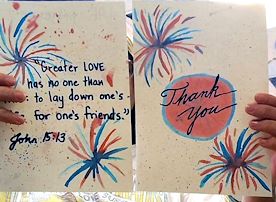 "Greater LOVE
has no one than
: to lay down one's
for one's friends."
John 15:13
Thank
you